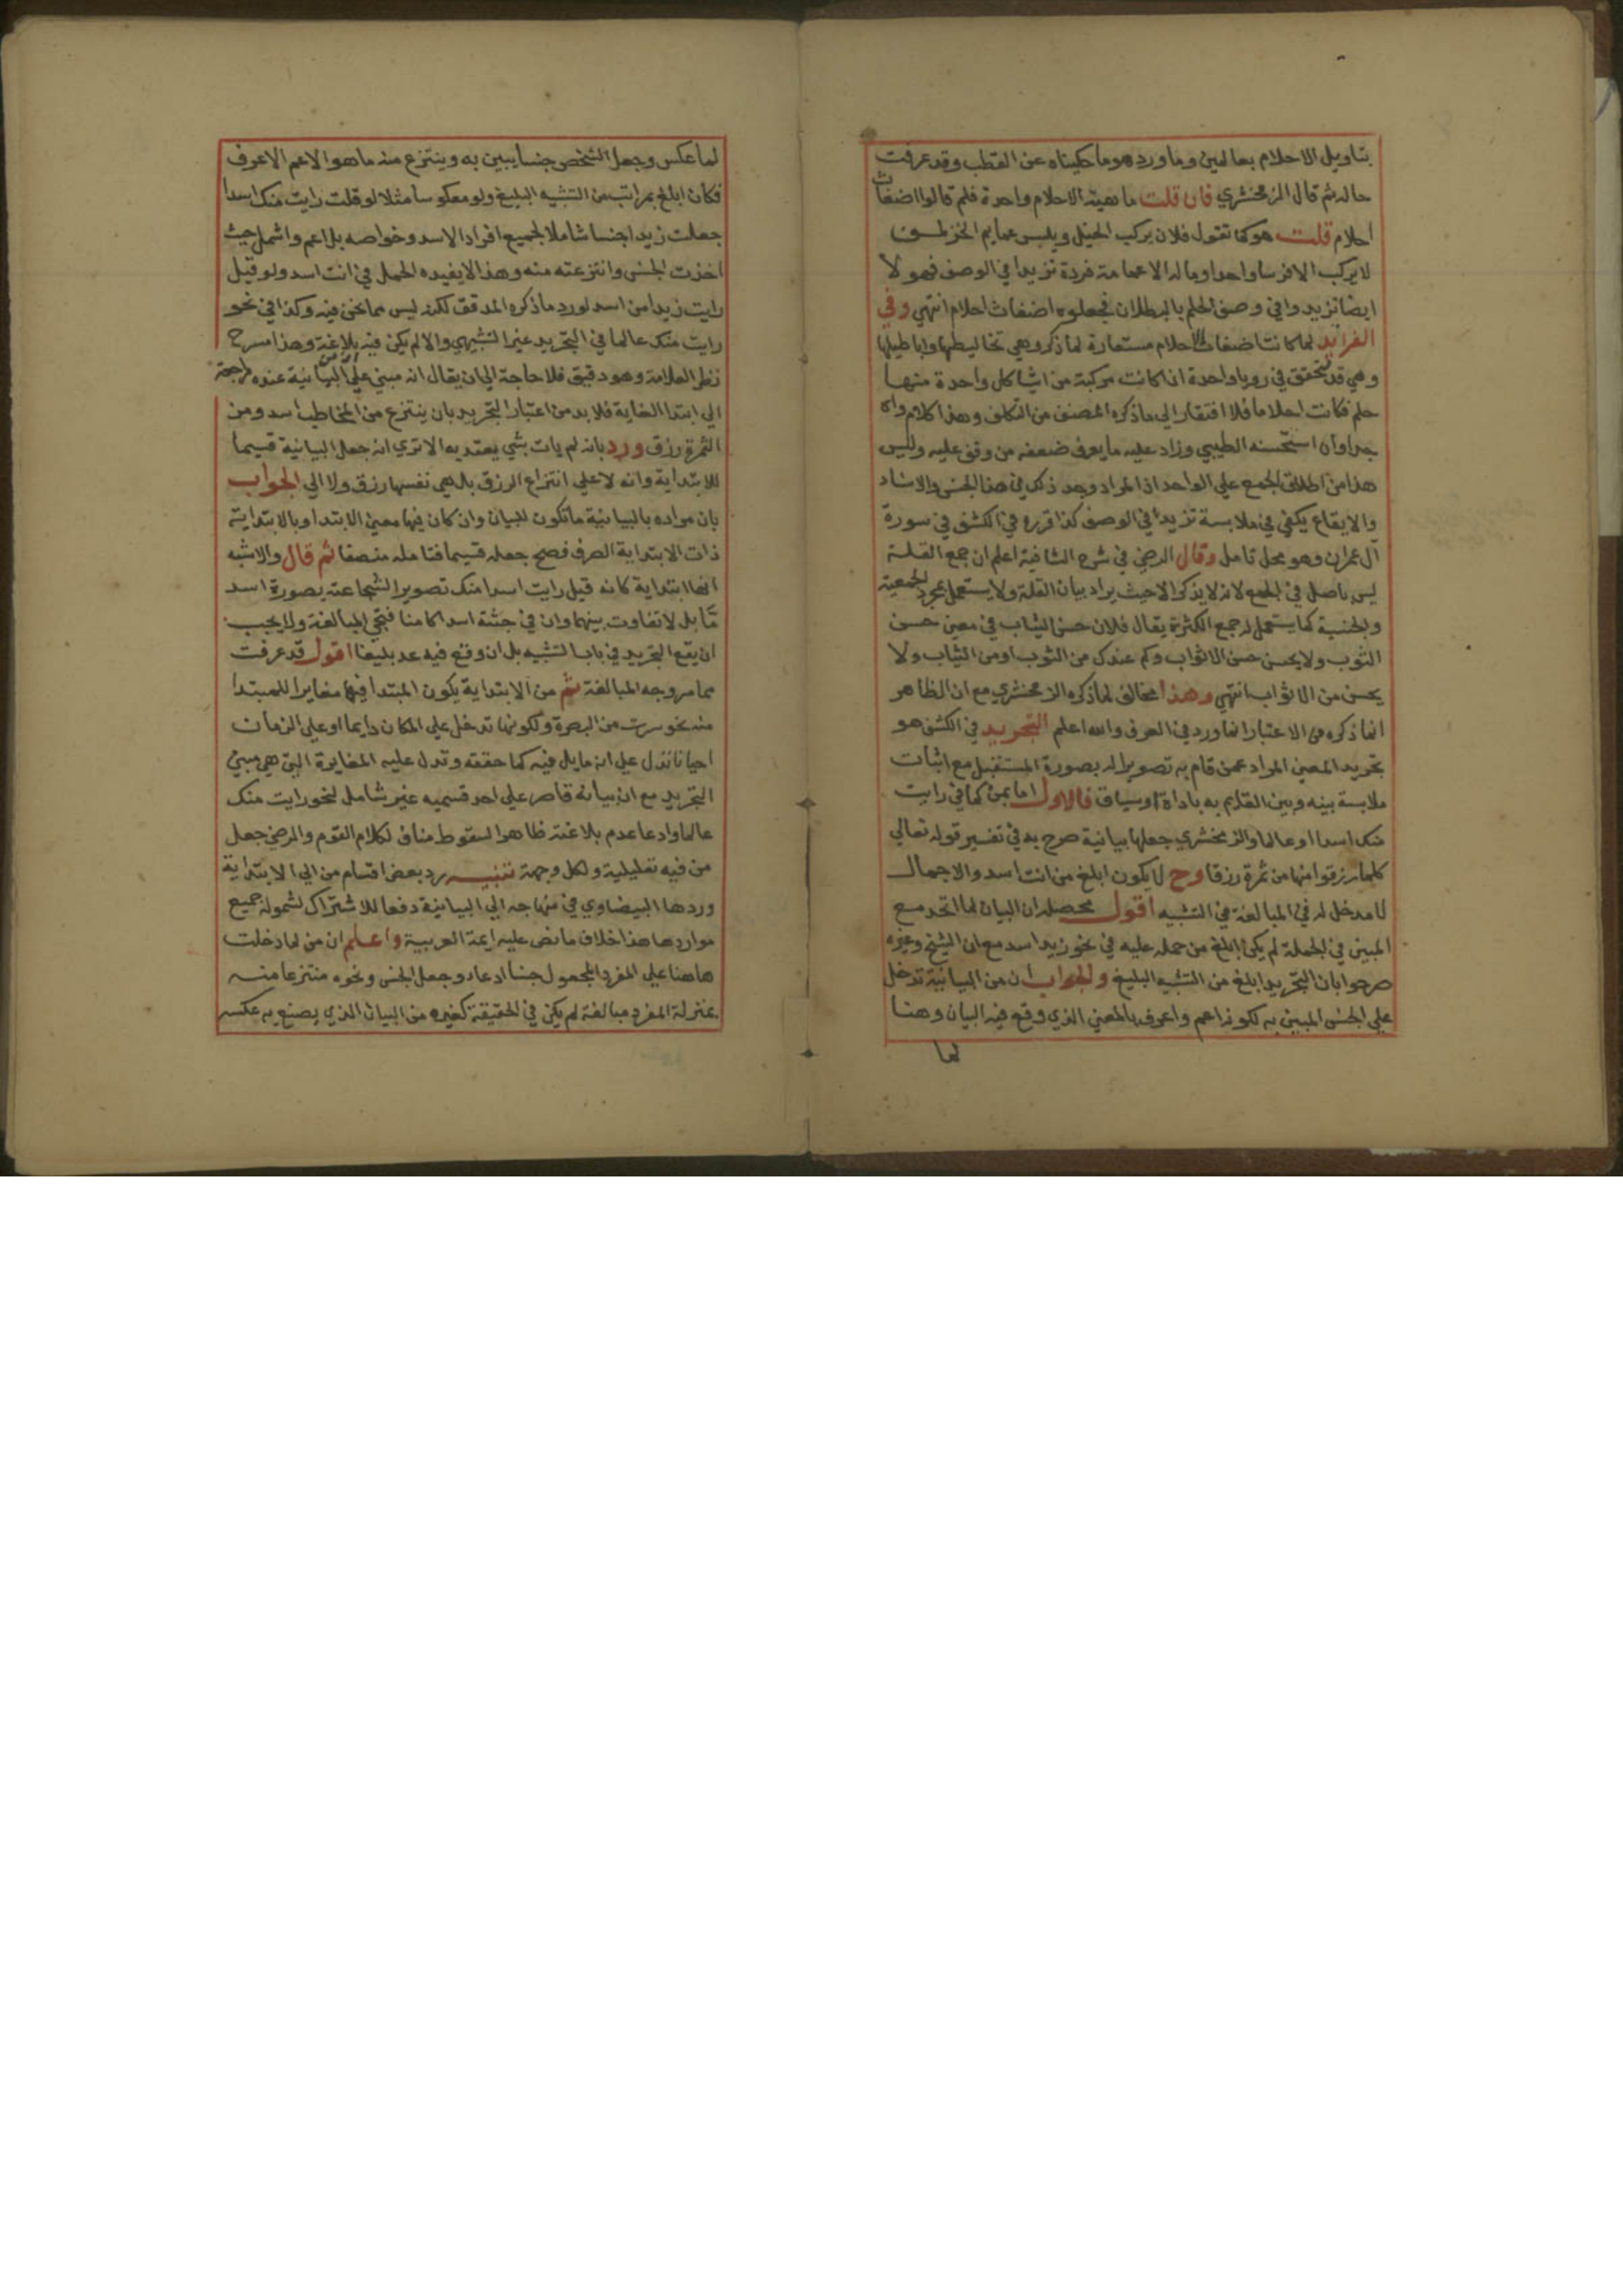 بتاويل الاحلام بعالمين وما ورد هو ما حكيناه عن القطب وقد عرفت
حاله ثم قال الزمخشري فان قلت ما هية الاحلام واحدة فلم قالوا اضغاث
احلام قلت هو كما تقول فلان يركب الخيل ويلبس عمايم الخز لمن
لا يركب الا فرسا واحدا وما له الا عمامة فردة تزيدا في الوصف فهولا
ايضا تزيدوا في وصف الحلم بالبطلان فجعلوه اضغاث احلام انتهي وفي
الفرايد لما كانت اضغاث الاحلام مستعارة لما ذكر وهي تخاليطها واباطيلها
وهي قد تتحقق في رويا واحدة اذا كانت مركبة من اشيا كل واحدة منها
حلم فكانت احلاما فلا افتقار الي ما ذكره المصنف من التكلف وهذا كلام واه
جدا وان استحسنه الطيبي وزاد عليه ما يعرف ضعفه من وقف عليه وليس
هذا من اطلاق الجمع علي الواحد اذ المراد وجد ذلك في هذا الجنس والاسناد
والايقاع يكفي في ملابسة تزيدا في الوصف كذا قرره في الكشف في سورة
آل عمران وهو محل تامل وقال الرضي في شرح الشافية اعلم ان جمع القلة
ليس باصل في الجمع لانه لا يذكر الا حيث يراد بيان القلة ولا يستعمل لمجرد الجمعية
والجنسية كما يستعمل له جمع الكثرة يقال فلان حسن الثياب في معني حسن
الثوب ولا يحسن حسن الاثواب وكم عندك من الثوب او من الثياب ولا
يحسن من الاثواب انتهي وهذا مخالف لما ذكره الزمخشري مع ان الظاهر
انما ذكره من الاعتبار انما ورد في العرف والله اعلم التجريد في الكشف هو
تجريد المعني المراد عمن قام به تصويرا له بصورة المستقبل مع اثبات
ملابسة بينه وبين القايم به باداة او سياق فالاول اما بمن كما في رايت
منك اسدا او عالما والزمخشري جعلها بيانية صرح به في تفسير قوله تعالي
كلما رزقوا منها من ثمرة رزقا وح لا يكون ابلغ من انت اسد والاجمال
لا مدخل له في المبالغة في التشبيه اقول محصله ان البيان لما اتحد مع
المبين في الجملة لم يكن ابلغ من حمله عليه في نحو زيد اسد مع ان الشيخ وغيره
صرحوا بان التجريد ابلغ من التشبيه البليغ والجواب ان من البيانية تدخل
علي الجنس المبين به لكونه اعم واعرف بالمعني الذي وقع فيه البيان وهنا
لما
لما عكس وجعل الشخص جنسا يبين به وينتزع منه ما هو الاعم الاعرف
فكان ابلغ بمراتب من التشبيه البليغ ولو معكوسا مثلا لو قلت رايت منك اسدا
جعلت زيدا جنسا شاملا لجميع افراد الاسد وخواصه بل اعم واشمل حيث
اخذت الجنس وانتزعته منه وهذا لا يفيده الحمل في انت اسد ولو قيل
رايت زيدا من اسد لورد ما ذكره المدقق لكنه ليس مما نحن فيه وكذا في نحو
رايت منك عالما في التجريد غير التشبيهي والا لم يكن فيه بلاغة وهذا مسرح
نظر العلامة وهو دقيق فلا حاجة الي ان يقال انه مبني علي ان من البيانية عنده راجعة
الي ابتدا الغاية فلا بد من اعتبار التجريد بان ينتزع من المخاطب اسد ومن
الثمرة رزق ورد بانه لم يات بشي يعتد به الا تري انه جعل البيانية قسيما
للابتداية وانه لا علي انتزاع الرزق بل هي نفسها رزق ولا الي الجواب
بان مراده بالبيانية ما تكون للبيان وان كان فيها معني الابتدا وبالابتداية
ذات الابتداية الصرف فصح جعله قسيما فتامله منصفا ثم قال والاشبه
انها ابتداية كانه قيل رايت اسدا منك تصويرا لشجاعته بصورة اسد
مقابل لا تفاوت بينهما وان في جثته اسدا كامنا فتجي المبالغة ولا يجب
ان يقع التجريد في باب التشبيه بل ان وقع فيه عد بليغا اقول قد عرفت
مما مر وجه المبالغة ثم من الابتداية يكون المبتدا فيها مغايرا للمبتدا
منه نحو سرت من البصرة ولكونها تدخل علي المكان دايما او علي الزمان
احيانا تدل علي انه ما يل فيه كما حققه وتدل عليه المغايرة التي هي مبني
التجريد مع ان بيانه قاصر علي احد قسميه غير شامل لنحو رايت منك
عالما وادعا عدم بلاغته ظاهر السقوط مناف لكلام القوم والرضي جعل
من فيه تعليلية ولكل وجهة تنبيه يرد بعض اقسام من الي الابتداية
وردها البيضاوي في منهاجه الي البيانية دفعا للاشتراك لشموله جميع
مواردها هذا خلاف ما نص عليه ايمة العربية واعلم ان من لما دخلت
هاهنا علي المفرد المجعول جنسا ادعاء وجعل الجنس ونحوه منتزعا منه
بمنزلة المفرد مبالغة لم يكن في الحقيقة كغيره من البيان الذي يصنع به عكسه